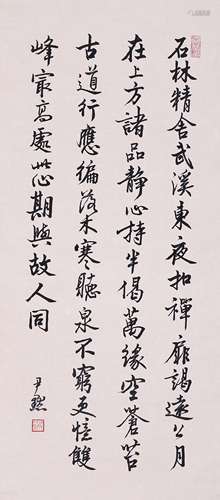 石林精舍武溪東夜扣禪扉謁遠公月
在上方諸品靜心持半偈萬緣空蒼苔
古道行應徧落木寒聽泉不窮更憶雙
峰最高處此心期與故人同
尹默